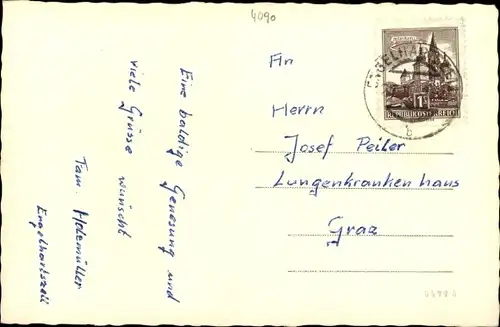 4090
Eine baldige Genesung und
viele Grüsse wünscht
Fam. Holzmüller
Engelhartszell
An
Herrn
Josef Peiler
Lungenkrankenhaus
Graz
1S
REPUBLIK ÖSTERREICH
b